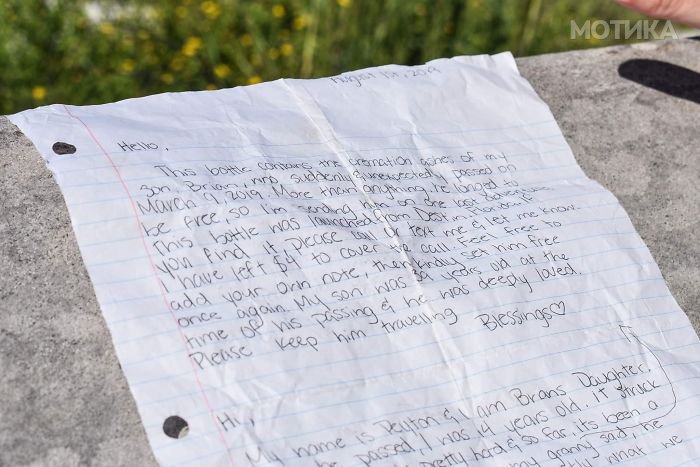 МОТИКА
August 1st, 2019
Hello,
This bottle contains the cremation ashes of my
son, Brian, who suddenly & unexpectedly passed on
March 9, 2019. More than anything, he longed to
be free, so I'm sending him on one last adventure.
This bottle was launched from Destin, Florida. If
you find it please call or text me & let me know.
I have left $4 to cover the call. Feel free to
add your own note, then kindly set him free
once again. My son was 39 years old at the
time of his passing & he was deeply loved.
Please keep him travelling Blessings♡
Hi,
My name is Peyton & I am Brians Daughter.
he passed, I was 14 years old. It struck
pretty hard & so far, its been a
my granny said, he
what we